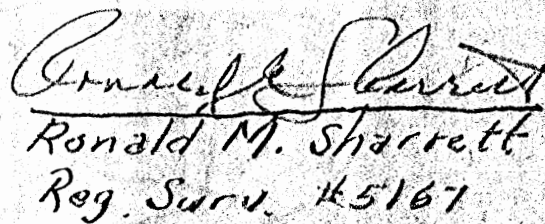 Ronald Sharrett
Ronald M. Sharrett
Reg. Surv. #5167